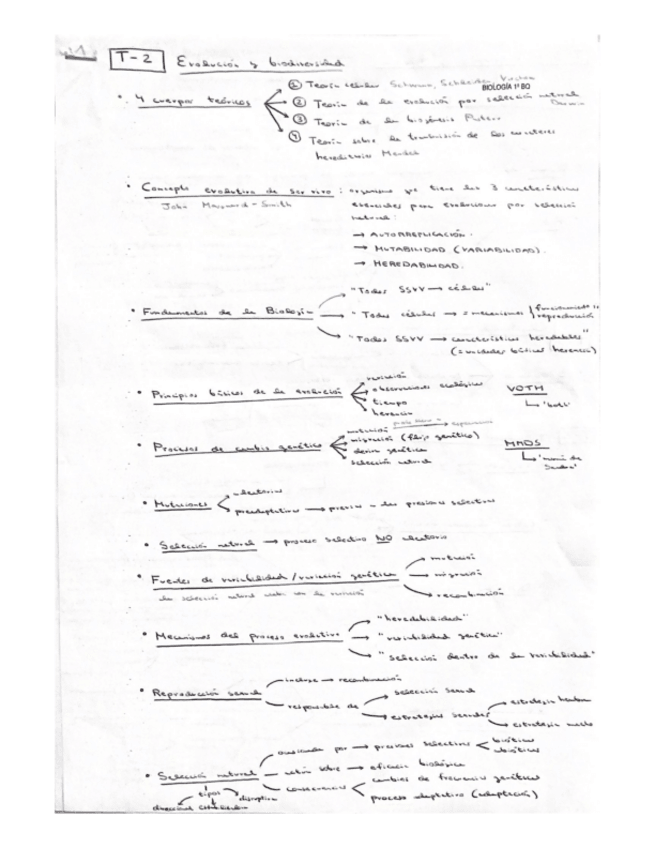 T-2 Evolución y biodiversidad
BIOLOGÍA 1º BO
• 4 cuerpos teóricos
① Teoría celular Schwann, Schleiden, Virchow
② Teoría de la evolución por selección natural Darwin
③ Teoría de la biogénesis Pasteur
④ Teoría sobre la transmisión de los caracteres
hereditarios Mendel
• Concepto evolutivo de ser vivo : organismo que tiene las 3 características
John Maynard-Smith
esenciales para evolucionar por selección
natural:
→ AUTORREPLICACIÓN.
→ MUTABILIDAD (VARIABILIDAD).
→ HEREDABILIDAD.
• Fundamentos de la Biología
"Todos SSVV → células"
"Todas células → = mecanismos funcionamiento"
reproducción
"Todos SSVV → características heredables"
(= unidades básicas herencia)
• Principios básicos de la evolución
variación
observaciones ecológicas
tiempo
herencia
VOTH
• Procesos de cambio genético
mutación
migración (flujo genético)
deriva genética
selección natural
MMDS
• Mutaciones
aleatorias
preadaptativas → previas a las presiones selectivas
• Selección natural → proceso selectivo NO aleatorio
• Fuentes de variabilidad/variación genética
→ mutación
→ migración
→ recombinación
la selección natural actúa con la variación
• Mecanismos del proceso evolutivo
"heredabilidad"
"variabilidad genética"
"selección dentro de la variabilidad"
• Reproducción sexual
incluye → recombinación
responsable de
selección sexual
estrategias sexuales
estrategia hembra
estrategia macho
• Selección natural
ocasionada por → presiones selectivas
bióticas
abióticas
actúa sobre → eficacia biológica
consecuencias
cambios de frecuencias genéticas
proceso adaptativo (adaptación)
tipos
disruptiva
direccional estabilizadora